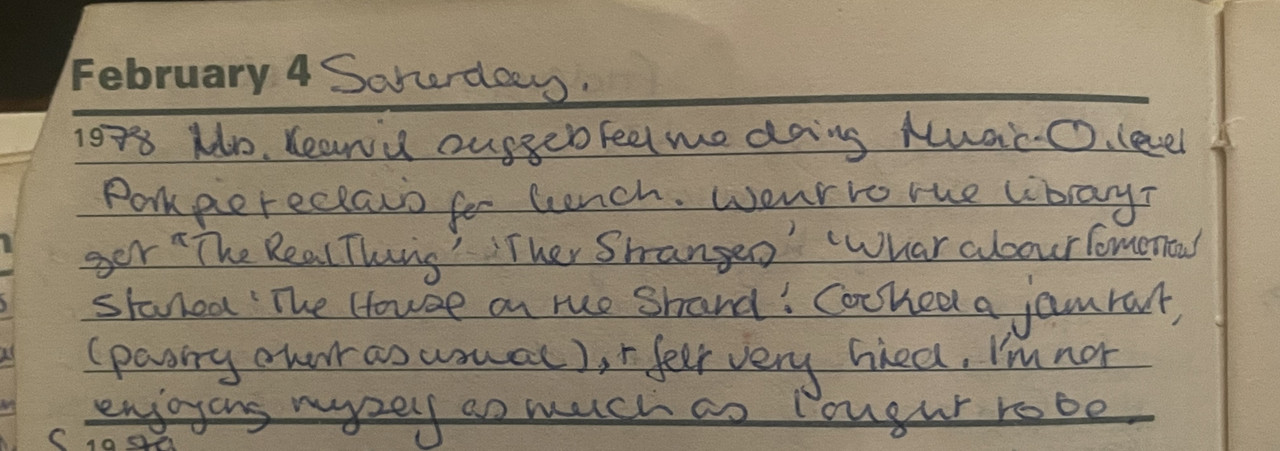 February 4 Saturday.
1978 Mrs. suggested me doing Music O.level
Pork pie + eclairs for lunch. Went to the library +
get "The Real Thing' 'The Strangers' 'What about Tomorrow
Started 'The House on the Strand'. Cooked a jam tart,
(pastry short as usual), + felt very tired. I'm not
enjoying myself as much as I ought to be.
19